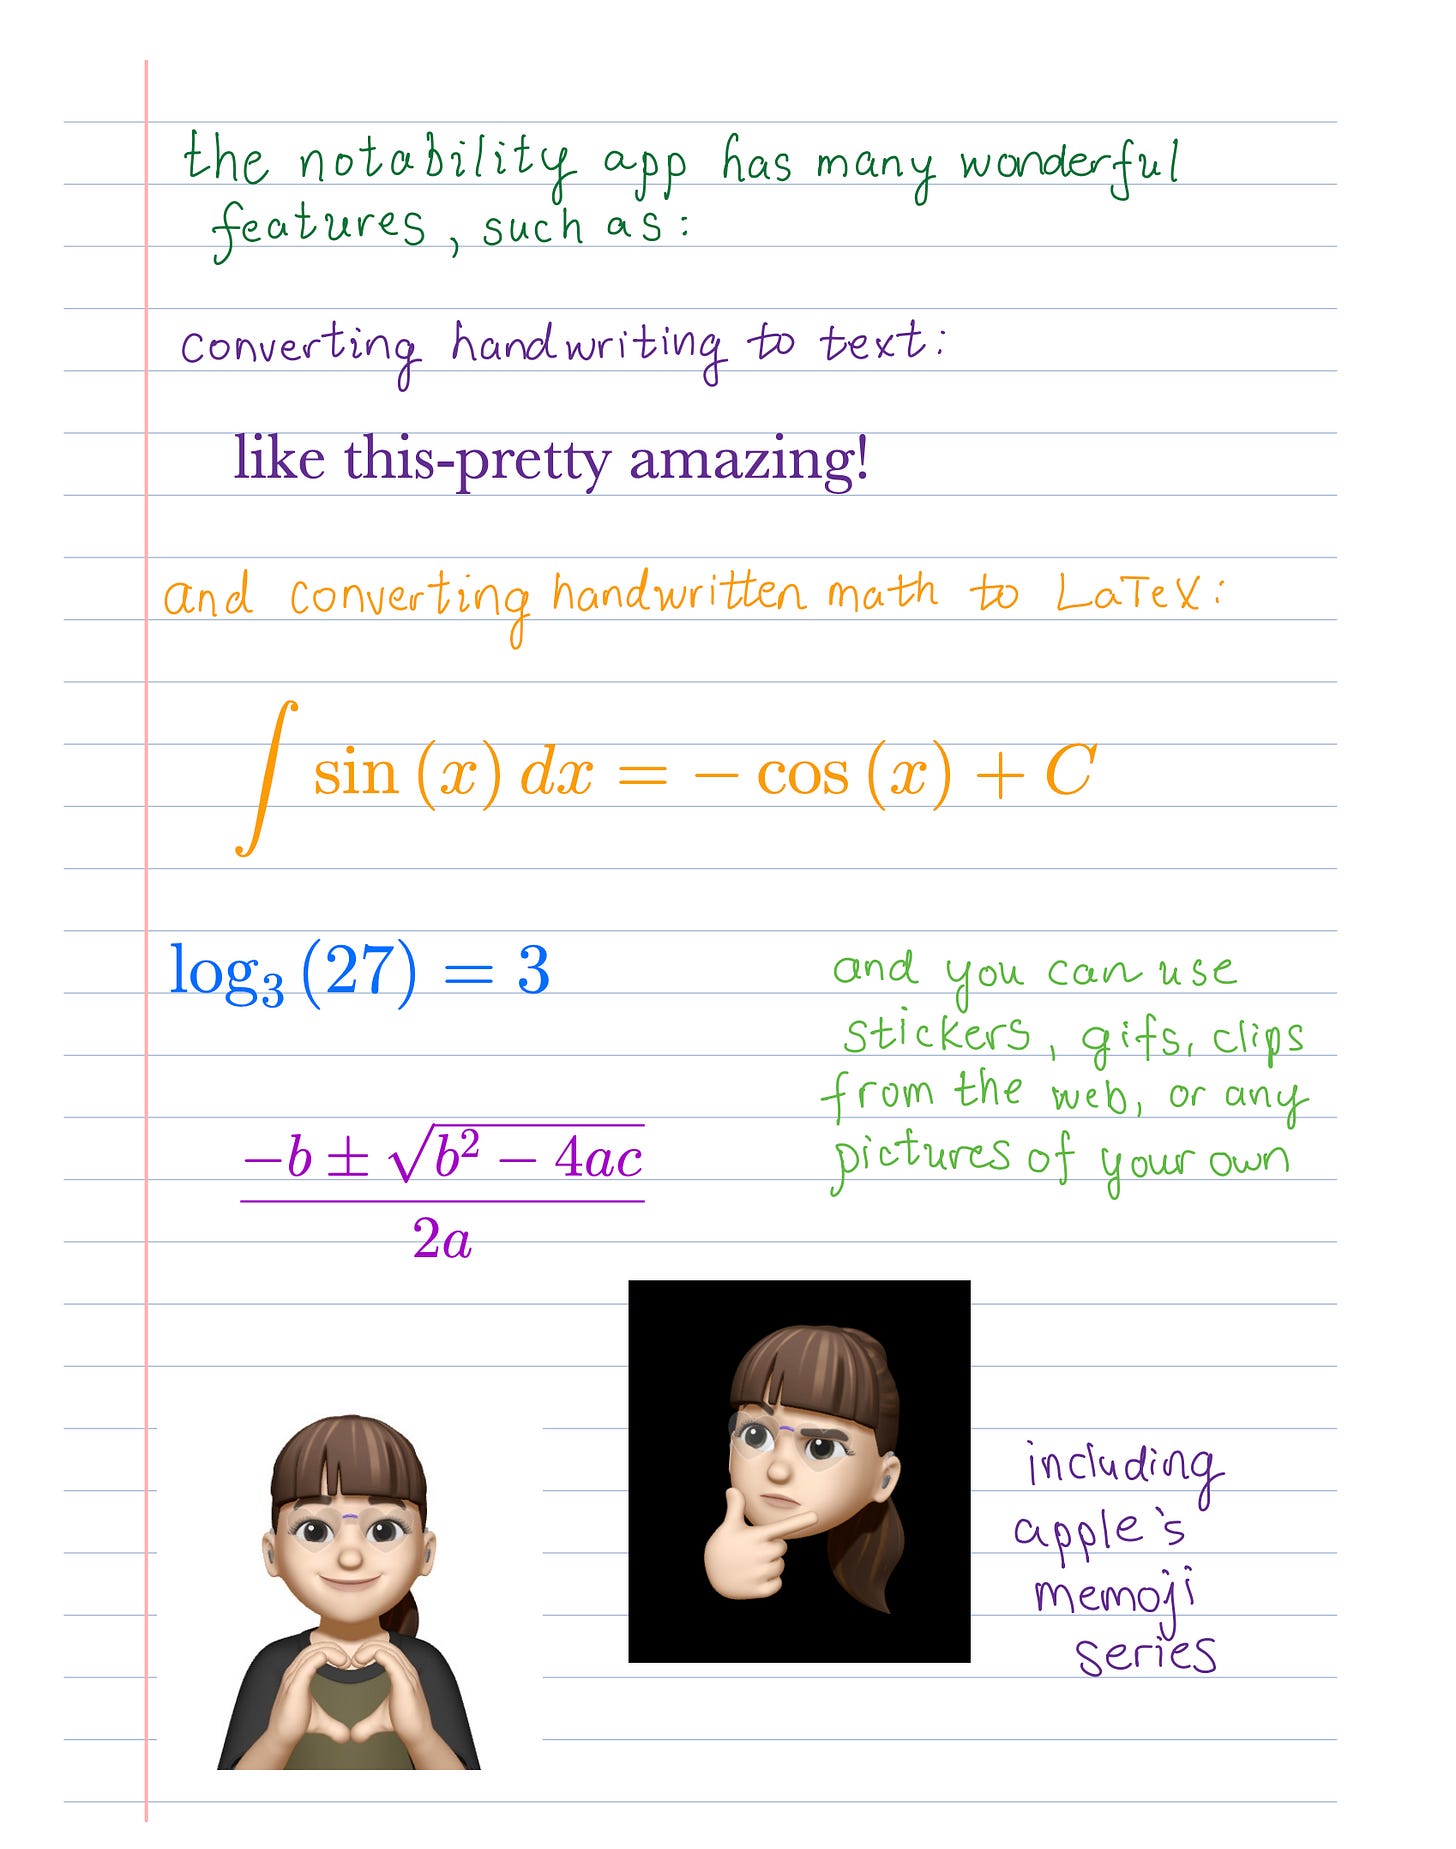 the notability app has many wonderful
features, such as:
converting handwriting to text:
like this-pretty amazing!
and converting handwritten math to LaTeX:
∫ sin (x) dx = − cos (x) + C
log₃ (27) = 3
−b ± √(b² − 4ac)
2a
and you can use
stickers, gifs, clips
from the web, or any
pictures of your own
including
apple's
memoji
series